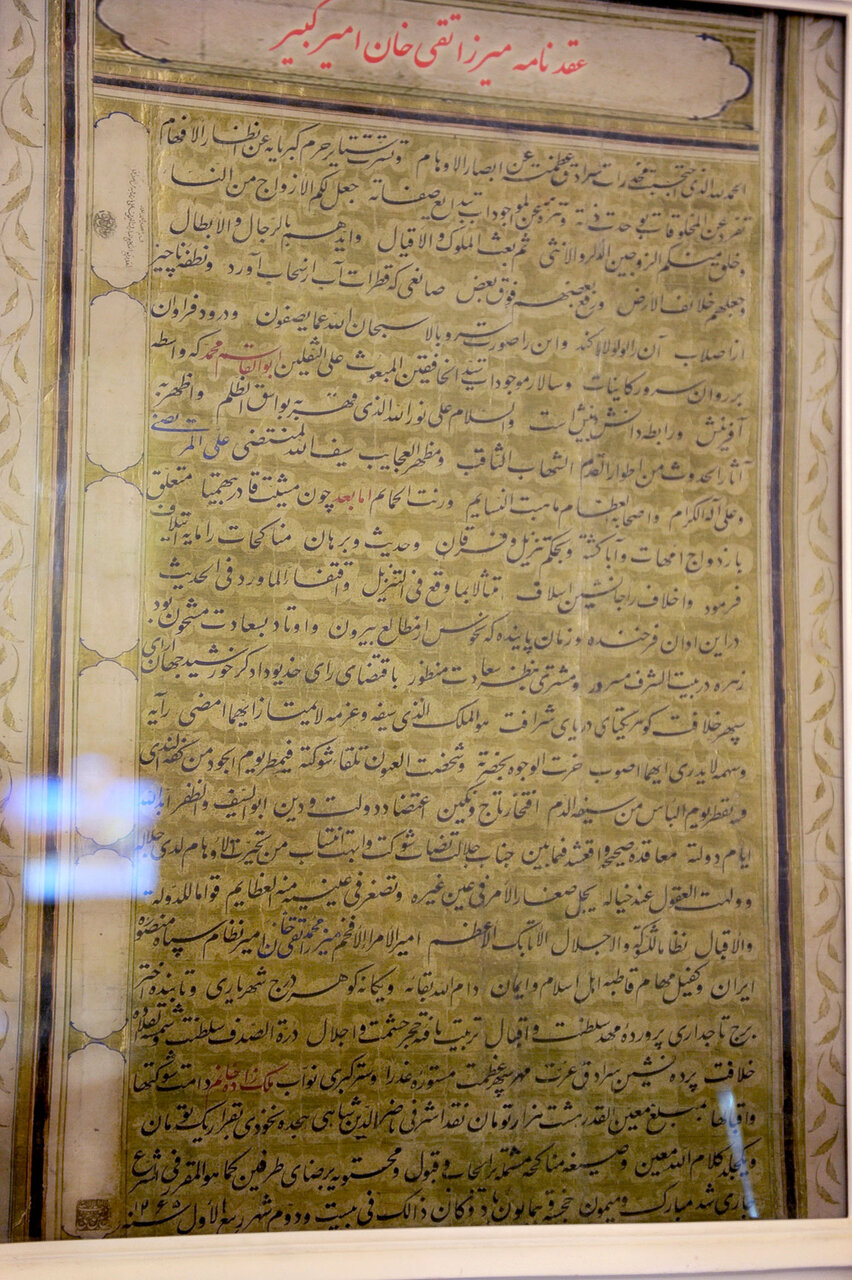 عقدنامه میرزا تقی خان امیرکبیر
الحمدلله الذی احتجبت مخدرات سرادق عظمته عن ابصار الاوهام و تسترت حرم کبریائه عن انظار الافهام
تفرد عن المخلوقات بوحدت ذاته و تنزه عن الموجودات ببدایع صفاته جعل لکم الازواج من النساء
و خلق منکم الزوجین الذکر و الانثی ثم بعث الملوک و الاقیال و ایدهم بالرجال و الابطال
و جعلهم خلائف الارض و رفع بعضهم فوق بعض صانعی که قطرات آب از سحاب آورد و نطفه ناچیز
از اصلاب آن را لولو لالا کند و این را صورت سرو بالا سبحان الله عما یصفون و درود فراوان
بر روان سرور کاینات و سالار موجودات سید الخافقین المبعوث علی الثقلین ابوالقاسم محمد که واسطه
آفرینش و رابط دانش و بینش است و السلام علی نور الله الذی قهر به بواسق الظلم و اظهر به
آثار الحدوث من اطوار القدم الشهاب الثاقب و مظهر العجایب سیف الله المنتضی علی المرتضی
و علی آله الکرام و اصحابه العظام ما هبت النسایم و رنت الحمایم اما بعد چون مشیت قادر متعلق
بازدواج امهات و آبا گشته و بحکم تنزیل و فرقان و حدیث و برهان مناکحات را مایه ایتلاف
فرمود و اخلاف را جانشین اسلاف امتثالا بما وقع فی التنزیل و اقتفاء لما ورد فی الحدیث
در این اوان فرخنده و زمان پاینده که نحوس از مطالع بیرون و اوتاد بسعادت مشحون بود
زهره در بیت الشرف مسرور و مشتری بنظر سعادت منظور باقتضای رای خدیو دادگر خورشید جهان آرای
سپهر خلافت گوهر یکتای دریای شرافت هو الملک الذی سیفه و عزمه لا یمتاز ایهما امضی رآیه
و سهمه لا یدری ایهما اصوب خرت الوجوه بحضرته و شخصت العیون تلقاء شوکته فیمطر یوم الجود من کفه الندی
و یقطر یوم الباس من سیفه الدم افتخار تاج و نگین اعتضاد دولت و دین ابو السیف و الظفر
ایام دولته معاقده صحیحه واقع شد فیمابین جناب جلالت نصاب شوکت و ابهت انتساب من تحیرت الاوهام لدی جلاله
و ولهت العقول عند خیاله یجل صغار الامر فی عین غیره و تصغر فی عینیه منه العظایم قواما للدولة
و الاقبال نظاما للشوکة و الاجلال الاتابک الاعظم امیر الامراء الافخم میرزا محمد تقی خان امیر نظام سپاه منصوره
ایران و کفیل مهام قاطبه اهل اسلام و ایمان دام الله بقائه و یگانه گوهر درج شهریاری و تابنده اختر
برج تاجداری پرورده مهد سلطنت و اقبال تربیت یافته حجر حشمت و اجلال درة الصدف سلطنت و شمسه قلاده
خلافت پرده نشین سرادق عزت مهر سپهر عظمت مستوره عذرا و ستر کبری نواب ملک زاده خانم دامت شوکتها
و اقبالها بمبلغ معین القدر هشت هزار تومان نقد اشرفی ناصرالدین شاهی هجده نخودی بقرار یک تومان
و یکجلد کلام الله معین و صیغه مناکحه مشتمله بر ایجاب و قبول و محتویه برضای طرفین کما هو المقرر فی الشرع
جاری شد مبارک و میمون خجسته و همایون باد و کان ذالک فی بیست و دوم شهر ربیع الاول سنه ۱۲۶۵